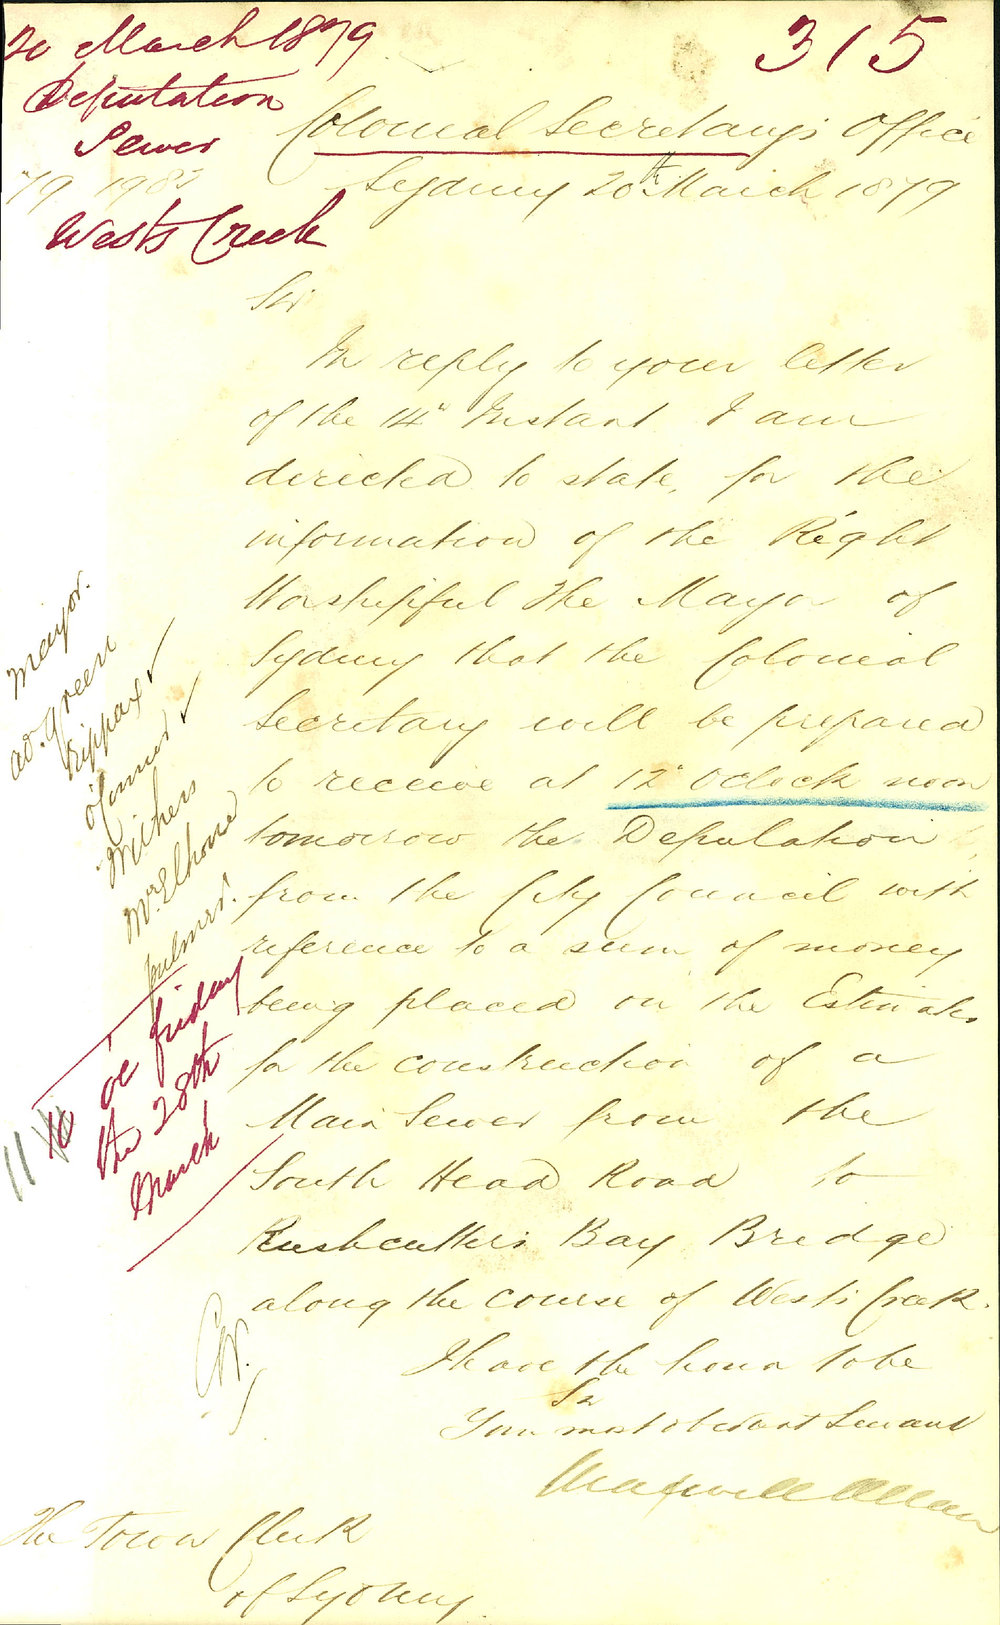 20 March 1879
Deputation
Sewer
Wests Creek
315
Colonial Secretary's Office
Sydney 20th March 1879
Sir
In reply to your letter
of the 14" Instant I am
directed to state, for the
information of the Right
Worshipful The Mayor of
Sydney that the Colonial
Secretary will be prepared
to receive at 12 OClock noon
tomorrow the Deputation
from the City Council with
reference to a sum of money
being placed on the Estimates
for the construction of a
Main Sewer from the
South Head Road to
Rushcutters Bay Bridge
along the course of West's Creek.
I have the honor to be
Sir
Your most obedient Servant
Maxwell Allan
The Town Clerk
of Sydney
Mayor.
Green
Kippax
Withers
McElhone
Palmer.
11
oc friday
the 28th
March